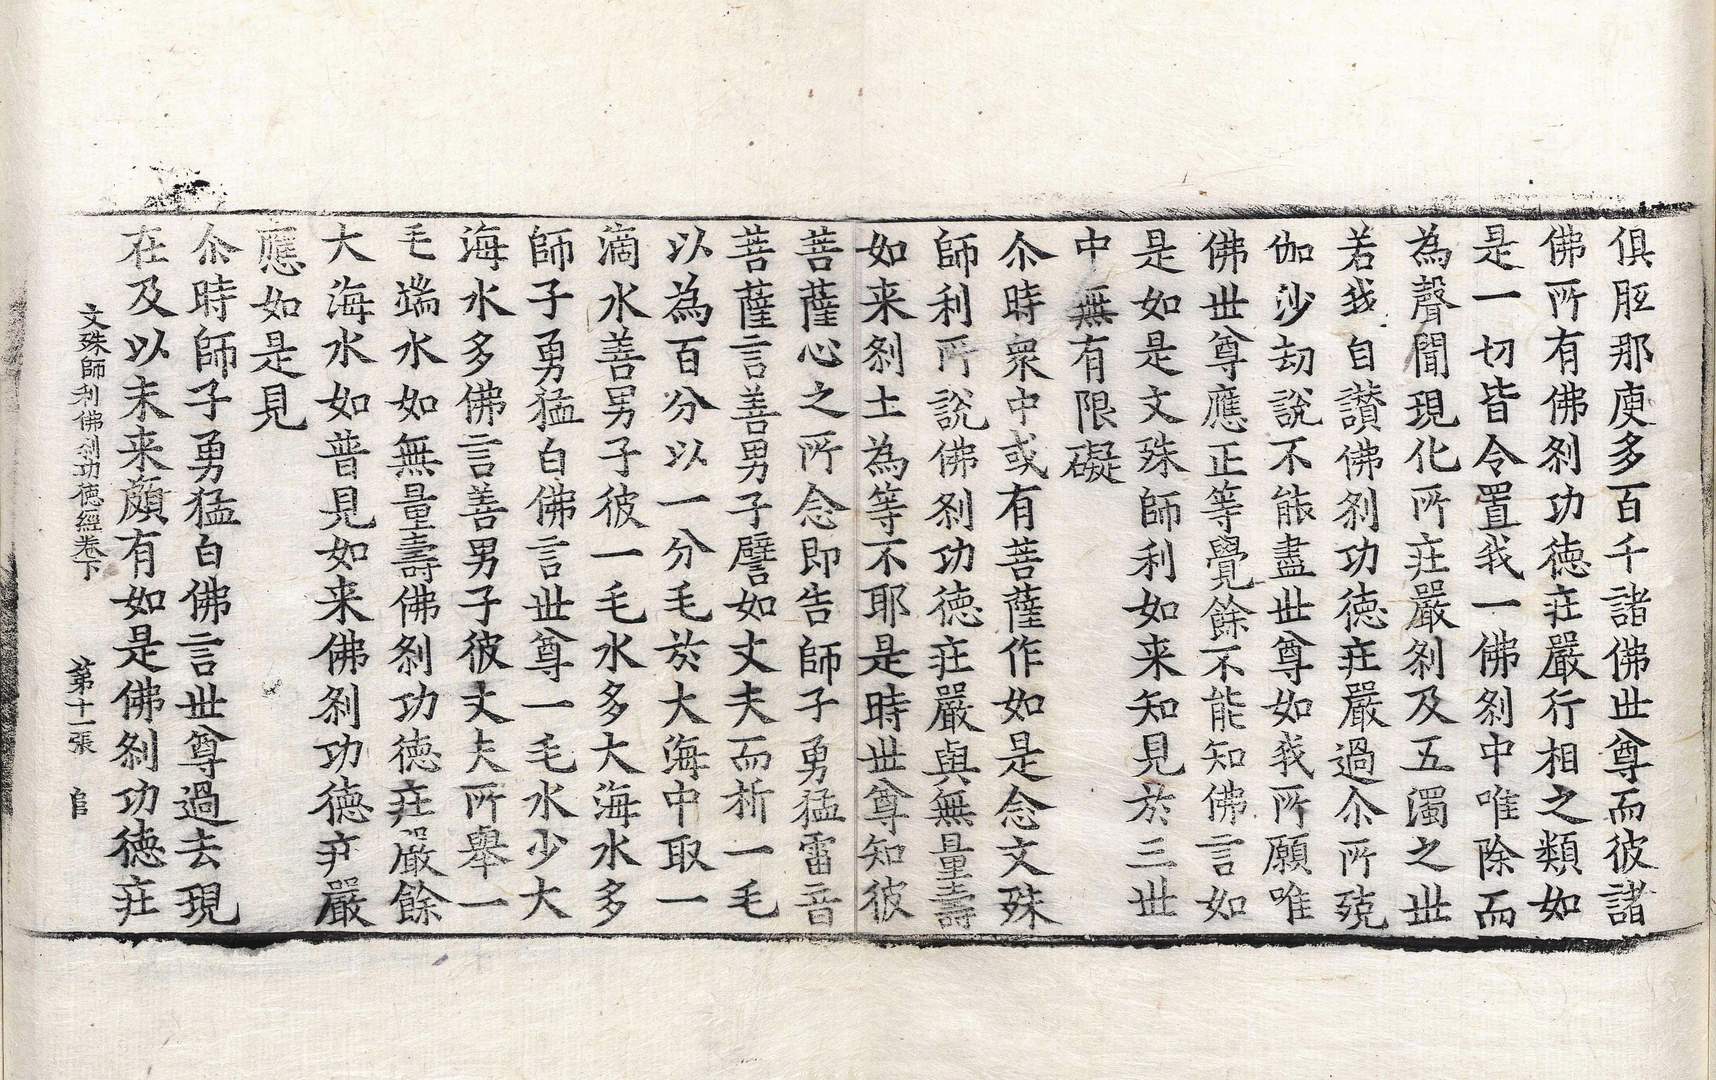 俱胝那庾多百千諸佛世尊而彼諸
佛所有佛剎功徳莊嚴行相之類如
是一切皆令置我一佛剎中唯除而
為聲聞現化所莊嚴剎及五濁之世
若我自讃佛剎功徳莊嚴過尒所殑
伽沙劫說不能盡世尊如我所願唯
佛世尊應正等覺餘不能知佛言如
是如是文殊師利如来知見於三世
中無有限礙
尒時衆中或有菩薩作如是念文殊
師利所說佛剎功徳莊嚴與無量壽
如来剎土為等不耶是時世尊知彼
菩薩心之所念即告師子勇猛雷音
菩薩言善男子譬如丈夫而析一毛
以為百分以一分毛於大海中取一
滴水善男子彼一毛水多大海水多
師子勇猛白佛言世尊一毛水少大
海水多佛言善男子彼丈夫所舉一
毛端水如無量壽佛剎功徳莊嚴餘
大海水如普見如来佛剎功徳莊嚴
應如是見
尒時師子勇猛白佛言世尊過去現
在及以未来頗有如是佛剎功徳莊
文殊師利佛剎功徳經卷下　第十一張　官